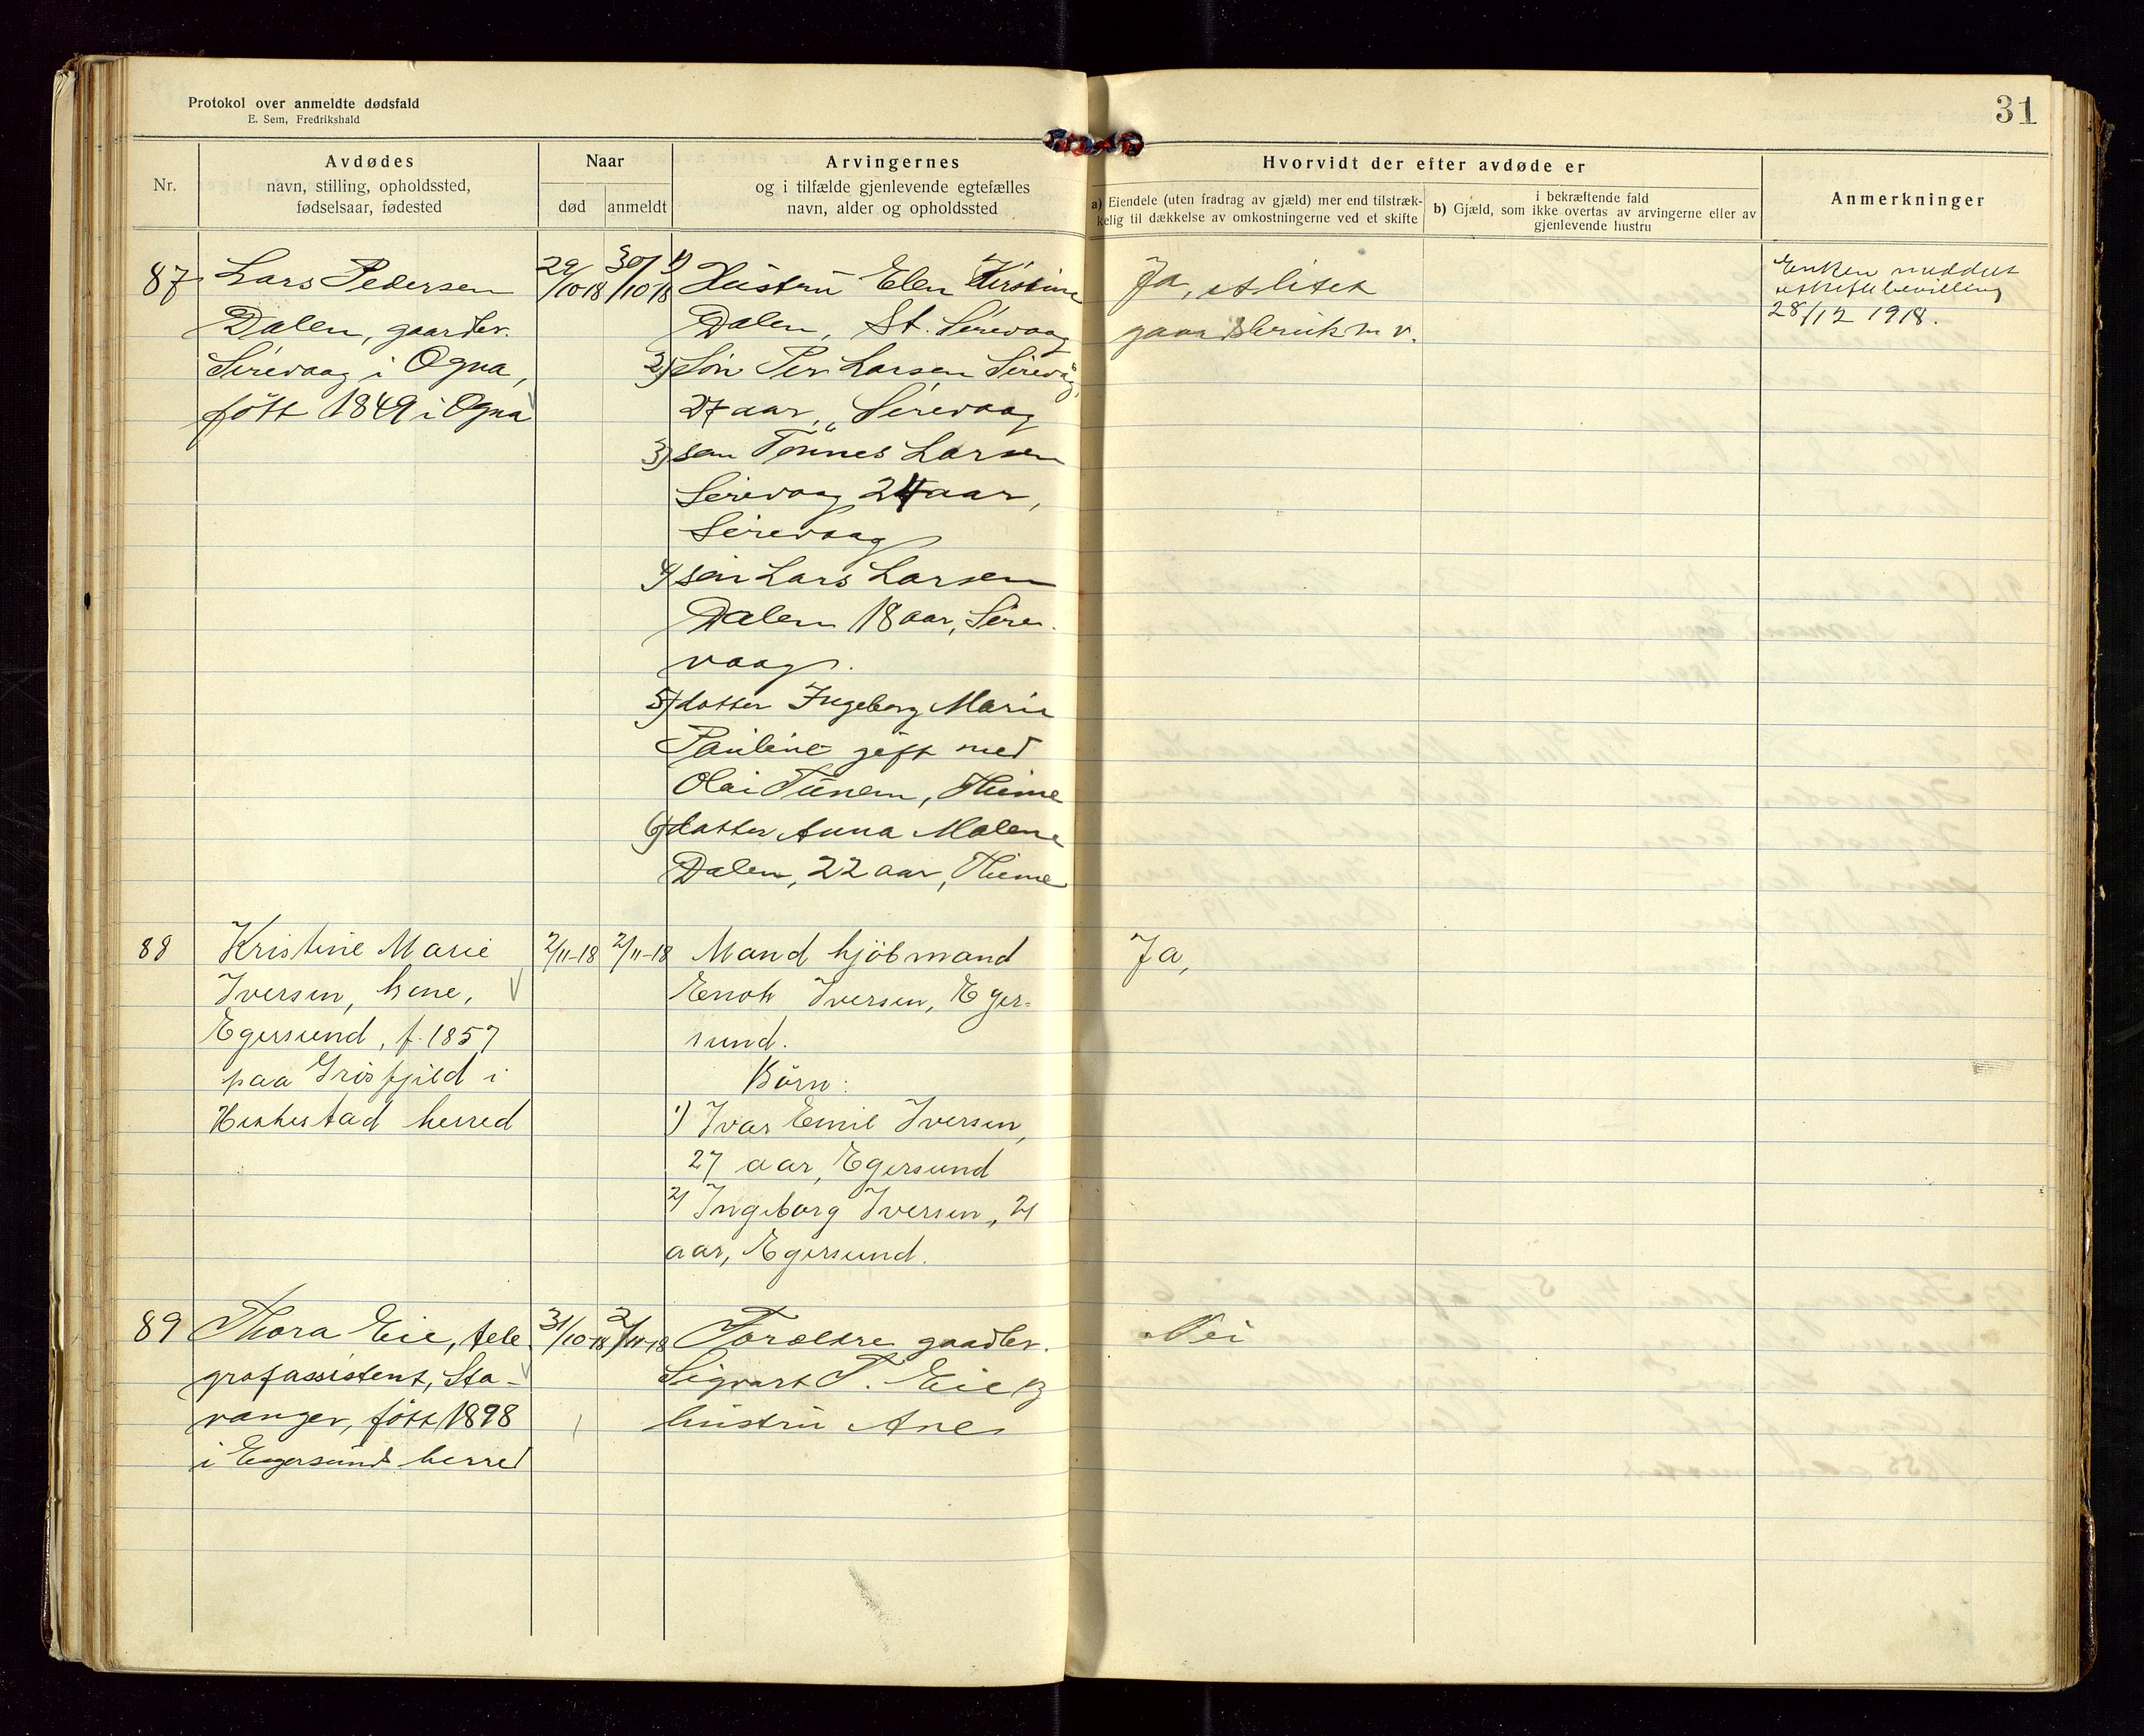 Protokol over anmeldte dødsfald
E. Sem, Fredrikshald
31
Nr.
Avdødes
navn, stilling, opholdssted,
fødselsaar, fødested
Naar
død
anmeldt
Arvingernes
og i tilfælde gjenlevende egtefælles
navn, alder og opholdssted
Hvorvidt der efter avdøde er
a) Eiendele (uten fradrag av gjæld) mer end tilstræk-
kelig til dækkelse av omkostningerne ved et skifte
i bekræftende fald
b) Gjæld, som ikke overtas av arvingerne eller av
gjenlevende hustru
Anmerkninger
87
Lars Pedersen
Dalen, gaardbr.
Sirevaag i Ogna,
født 1849 i Ogna
29/10-18
30/10-18
1) Hustru Elen Kirstine
Dalen, St. Sirevaag
2) Søn Per Larsen Sirevåg,
27 aar, Sirevaag
3) søn Tønnes Larsen
Sirevaag 24 aar,
Sirevaag
4) søn Lars Larsen
Dalen 18 aar, Sire-
vaag.
5) datter Ingeborg Marie
Pauline gift med
Olai Tunem, Thime
6) datter Anna Malene
Dalen, 22 aar, Thime
Ja, et litet
gaardsbruk m v.
Enken meddelt
uskiftebevilling
28/12 1918.
88
Kristine Marie
Iversen, kone,
Egersund, f. 1857
paa Grisfjeld i
Heskestad herred
2/11-18
2/11-18
Mand kjøbmand
Enok Iversen, Eger-
sund.
Børn:
1) Ivar Emil Iversen,
27 aar, Egersund
2) Ingeborg Iversen, 21
aar, Egersund.
Ja,
89
Thora Eie, tele
grafassistent, Sta-
vanger, født 1898
i Egersund herred
31/10-18
2/11-18
Forældre gaardbr.
Sigvart T. Eie og
hustru Ane
Nei